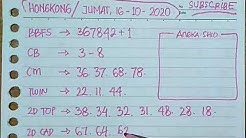 HONGKONG / JUMAT, 16-10-2020
SUBSCRIBE
BBFS → 367842 + 1
ANGKA SHIO
CB → 3 - 8
CM → 36. 37. 68. 78.
TWIN → 22. 11. 44.
2D TOP → 38. 34. 32. 31. 48. 28. 18.
2D CAD → 67. 64. 62